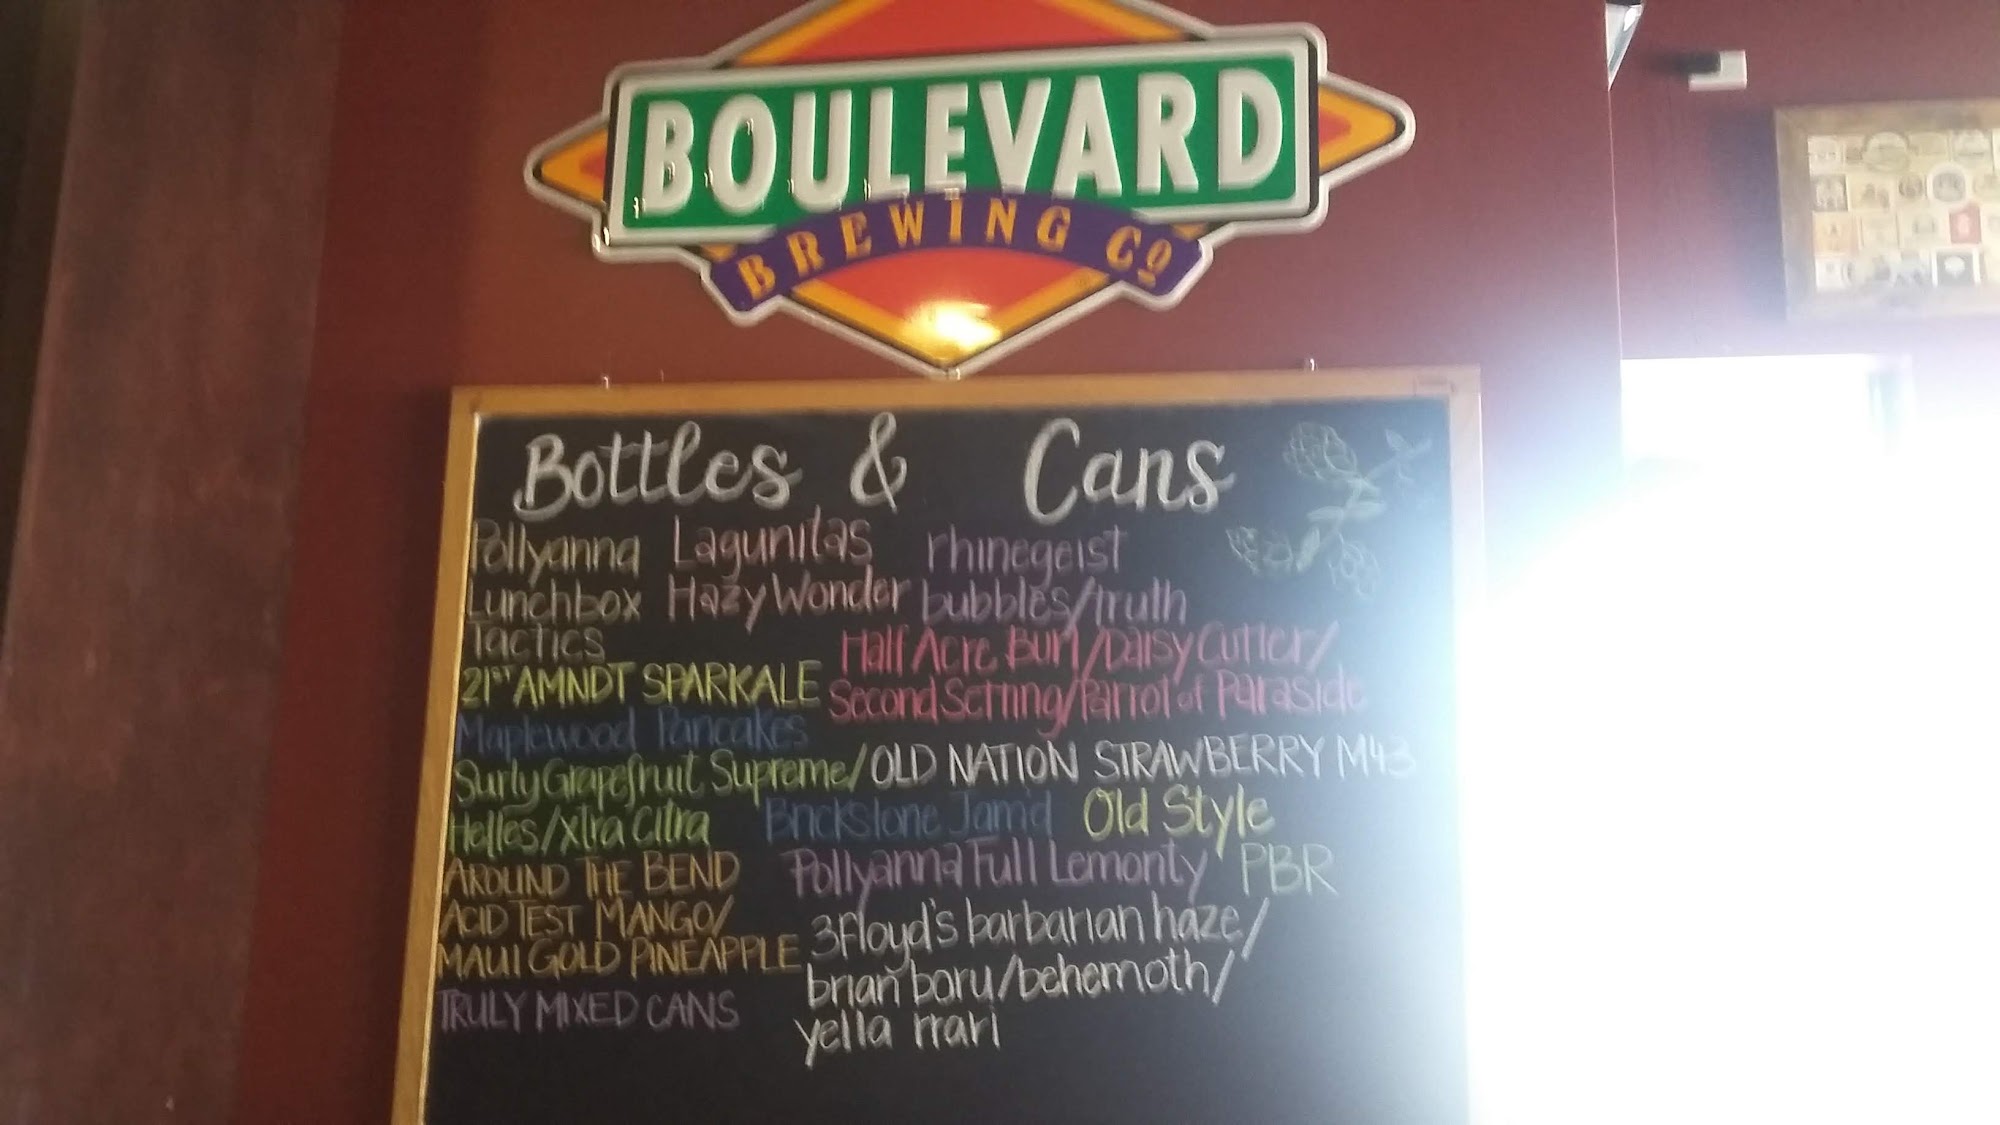 BOULEVARD
BREWING Co
Bottles & Cans
Pollyanna
Lunchbox
Tactics
Lagunitas
Hazy Wonder
rhinegeist
bubbles/truth
21ST AMNDT SPARKALE
Half Acre Burl/Daisy Cutter/
Second Setting/Parrot of Paraside
Maplewood Pancakes
Surly Grapefruit Supreme/
Helles/Xtra Citra
OLD NATION STRAWBERRY M43
Brickstone Jam'd
Old Style
AROUND THE BEND
ACID TEST MANGO/
MAUI GOLD PINEAPPLE
Pollyanna Full Lemonty
PBR
3Floyd's barbarian haze/
brian boru/behemoth/
yella rrari
TRULY MIXED CANS